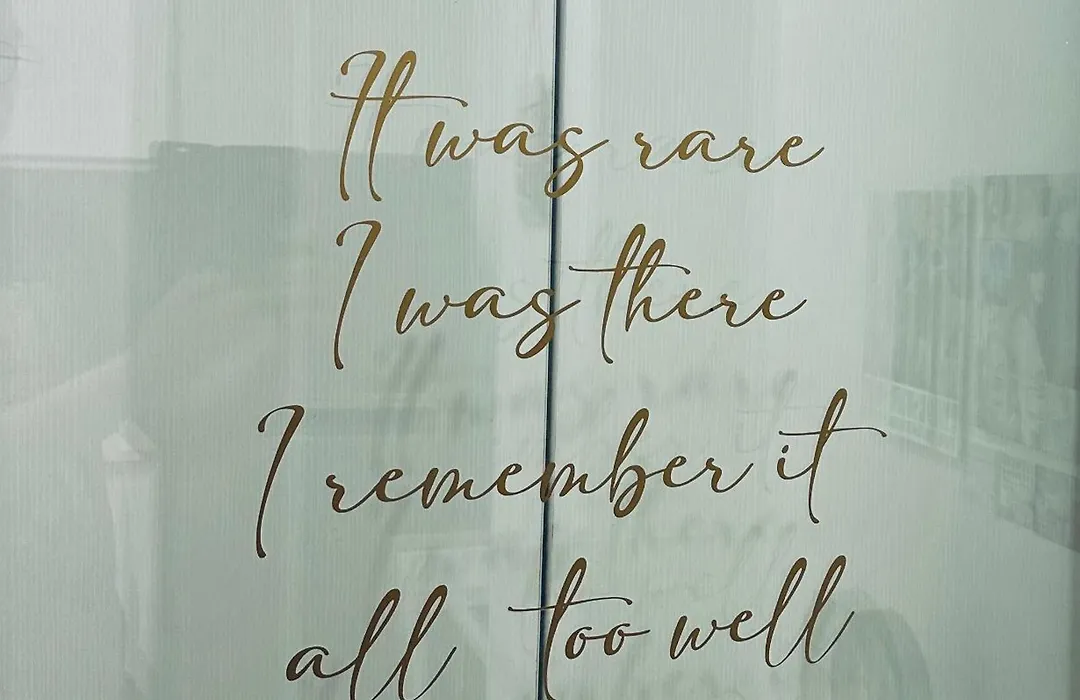 It was rare
I was there
I remember it
all too well